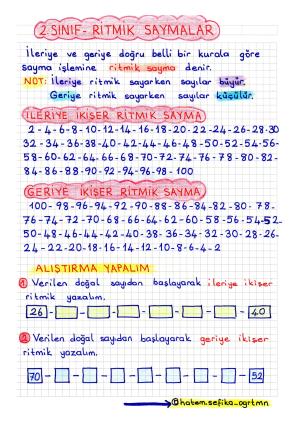 2.SINIF- RİTMİK SAYMALAR
İleriye ve geriye doğru belli bir kurala göre
sayma işlemine ritmik sayma denir.
NOT: İleriye ritmik sayarken sayılar büyür.
Geriye ritmik sayarken sayılar küçülür.
İLERİYE İKİŞER RİTMİK SAYMA
2-4-6-8-10-12-14-16-18-20-22-24-26-28-30
32-34-36-38-40-42-44-46-48-50-52-54-56-
58-60-62-64-66-68-70-72-74-76-78-80-82-
84-86-88-90-92-94-96-98-100
GERİYE İKİŞER RİTMİK SAYMA
100-98-96-94-92-90-88-86-84-82-80-78-
76-74-72-70-68-66-64-62-60-58-56-54-52-
50-48-46-44-42-40-38-36-34-32-30-28-26-
24-22-20-18-16-14-12-10-8-6-4-2
ALIŞTIRMA YAPALIM
1 Verilen doğal sayıdan başlayarak ileriye ikişer
ritmik yazalım.
26 - - - - - - 40
2 Verilen doğal sayıdan başlayarak geriye ikişer
ritmik yazalım.
70 - - - - - - - - 52
@hatem.sefika_ogrtmn